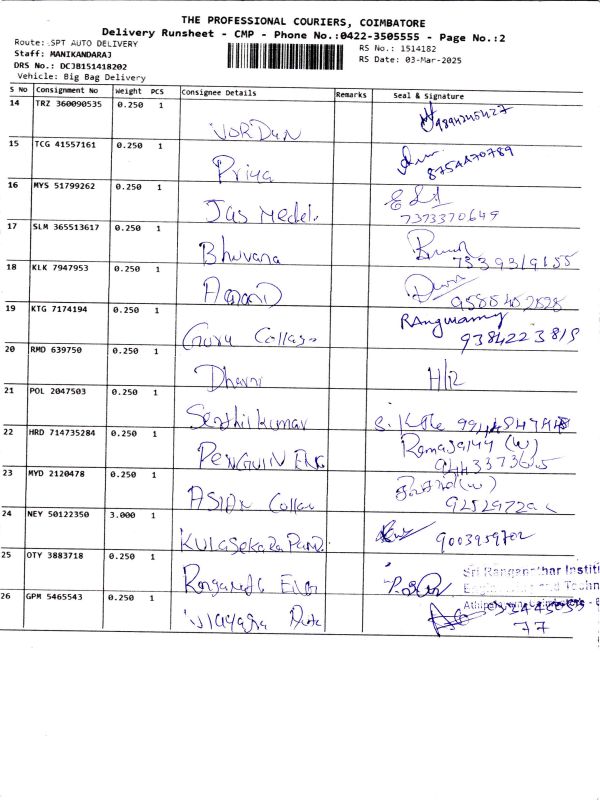 THE PROFESSIONAL COURIERS, COIMBATORE
Delivery Runsheet - CMP - Phone No.:0422-3505555 - Page No.:2
Route: SPT AUTO DELIVERY
Staff: MANIKANDARAJ
DRS No.: DCJB151418202
Vehicle: Big Bag Delivery
RS No.: 1514182
RS Date: 03-Mar-2025
S No Consignment No Weight PCS Consignee Details Remarks Seal & Signature
14 TRZ 360090535 0.250 1
JORDAN
15 TCG 41557161 0.250 1
Priya 8754470789
16 MYS 51799262 0.250 1
Jas Medel. 7373370649
17 SLM 365513617 0.250 1
Bhuvana 7339319155
18 KLK 7947953 0.250 1
Anand
19 KTG 7174194 0.250 1 RAngwamy
Guru Collage 9384223819
20 RMD 639750 0.250 1
Dharni H/12
21 POL 2047503 0.250 1
Senthilkumar
22 HRD 714735284 0.250 1 (W)
PENGUIN ENG
23 MYD 2120478 0.250 1 (W)
ASIAN Collan
24 NEY 50122350 3.000 1
KULASEKARA 9003959702
25 OTY 3883718 0.250 1 Sri Ranganathar Instit
Ranganath Eng Engineering and Techn
26 GPM 5465543 0.250 1
77